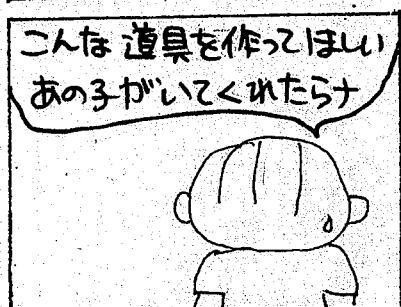 こんな道具を作ってほしい
あの子がいてくれたらナ